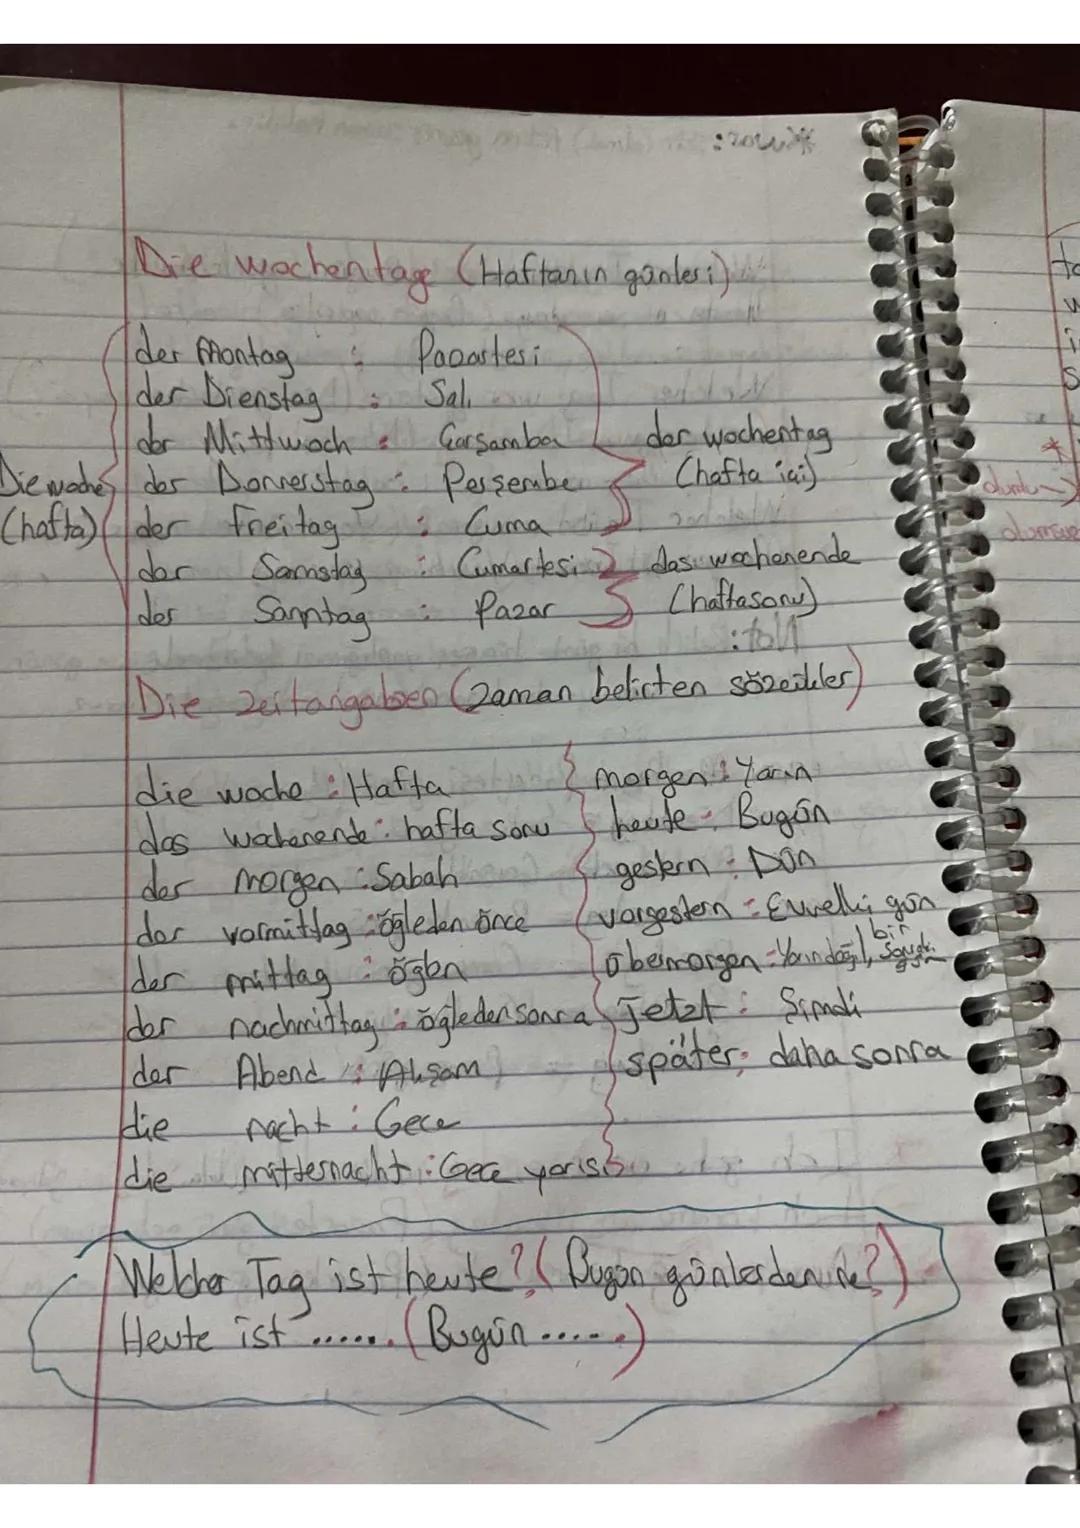 Die wochentage (Haftanın günleri)
der Montag : Pazartesi
der Dienstag : Salı
der Mittwoch : Çarşamba
der wochentag
Die woche
der Donnerstag : Perşembe
(hafta içi)
(hafta)
der freitag : Cuma
der Samstag : Cumartesi
das wochenende
der Sonntag : Pazar
(haftasonu)
Die zeitangaben (zaman belirten sözcükler)
die woche : Hafta
morgen : Yarın
das wochenende : hafta sonu
heute : Bugün
der morgen : Sabah
gestern : Dün
der vormittag : öğleden önce
vorgestern : Evvelki gün
der mittag : öğlen
übermorgen : Yarın değil, bir sonraki gün
der nachmittag : öğleden sonra
Jetzt : Şimdi
der Abend : Akşam
später : daha sonra
die nacht : Gece
die mitternacht : Gece yarısı
Welcher Tag ist heute? (Bugün günlerden ne?)
Heute ist ...... (Bugün .....)